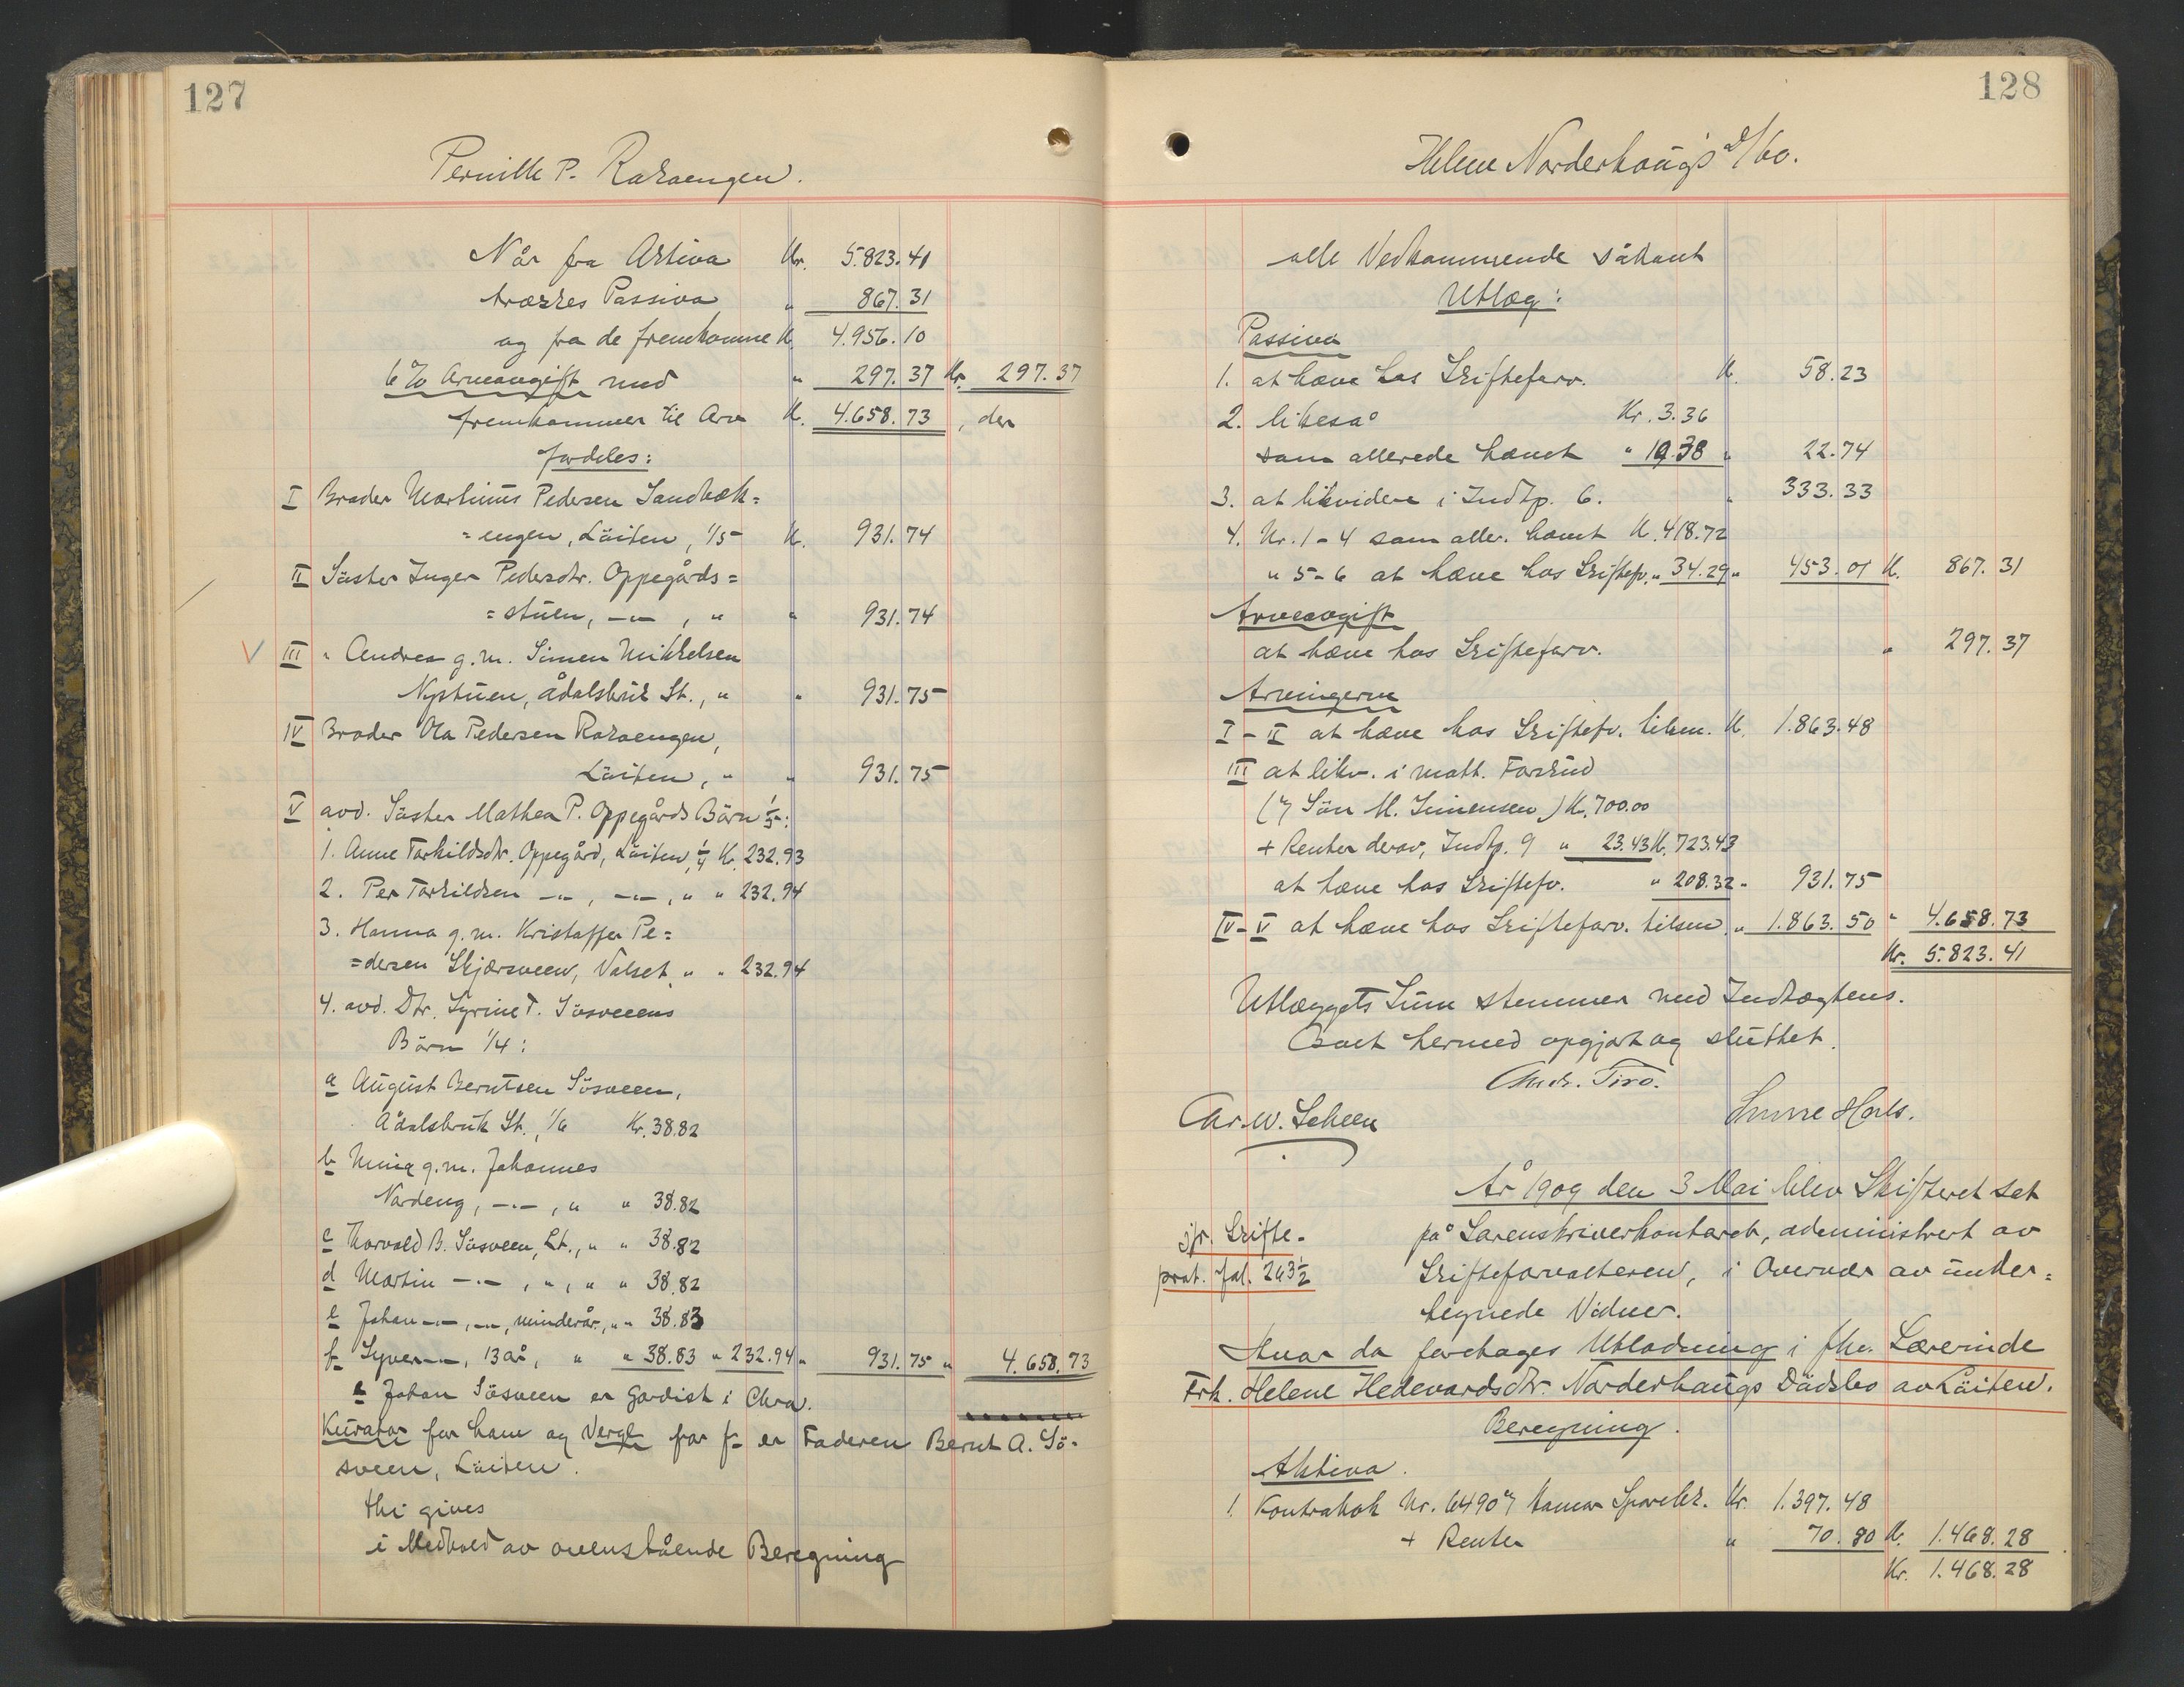 127
Pernille P. Rakaengen.
Når fra Aktiva Kr. 5.823.41
trækkes Passiva " 867.31
og fra de fremkomne K. 4.956.10
6 % Arveavgift med " 297.37 Kr. 297.37
fremkommer til Arv K. 4.658.73, der
fordeles:
I Broder Martinus Pedersen Sandbæk=
=engen, Löiten, 1/5 K. 931.74
II Söster Inger Pedersdtr. Oppegårds=
=stuen, -"-, " " 931.74
V III " Andrea g.m. Simen Mikkelsen
Nystuen, Ådalsbruk St., " " 931.75
IV Broder Ola Pedersen Rakaengen,
Löiten, " " 931.75
V avd. Söster Mathea P. Oppegårds Börn 1/5:
1. Anne Torkildsdtr. Oppegård, Löiten, 1/4 K. 232.93
2. Per Torkildsen -"-, -"-, " " 232.94
3. Hanna g.m. Kristoffer Pe=
=dersen Skjærsveen, Valset, " " 232.94
4. avd. Dtr. Syrine T. Sösveens
Börn 1/4:
a August Berntsen Sösveen,
Ådalsbruk St., 1/6 Kr. 38.82
b Mina g.m. Johannes
Nordeng, -"-, " " 38.82
c Thorvald B. Sösveen, Lt., " " 38.82
d Martin -"-, ", " " 38.82
e Johan -"-, -"-, minderår., " " 38.83
f Syver -"-, 13 år, " " 38.83 " 232.94 " 931.75 " 4.658.73
e Johan Sösveen er Gardist i Chra.
Kurator for ham og Verge for f er Faderen Bernt A. Sö-
sveen, Löiten.
thi gives
i Medhold av ovenstående Beregning
128
Helene Norderhaugs d/bo.
alle Vedkommende såkant
Utlæg:
Passiva
1. at hæve hos Skifteforv. K. 58.23
2. likeså Kr. 3.36
som allerede hævet " 19.38 " 22.74
3. at likvidere i Indtp. 6. " 333.33
4. Nr. 1-4 som aller. hævet K. 418.72
" 5-6 at hæve hos Skiftefv. " 34.29 " 453.01 K. 867.31
Arveavgift
at hæve hos Skifteforv. " 297.37
Arvingerne
I-II at hæve hos Skiftefv. tilsm. K. 1.863.48
III at likv. i mott. Forskud
(v/ Sön M. Simensen) K. 700.00
+ Renter derav, Indtp. 9 " 23.43 K. 723.43
at hæve hos Skiftefv. " 208.32 " 931.75
IV-V at hæve hos Skifteforv. tilsm. " 1.863.50 " 4.658.73
Kr. 5.823.41
Utlæggets Sum stemmer med Indtægtens.
Boet hermed opgjort og sluttet.
Andr. Tiro.
Chr. W. Scheen
Sunne Hals.
År 1909 den 3 Mai blev Skifteret sat
på Sorenskriverkontoret, administrert av
Skifteforvalteren, i Overvær av under=
tegnede Vidner.
jfr. Skifte-
prot. fol. 263 1/2
Hvor da foretages Utlodning i fhv. Lærerinde
Frk. Helene Hedevardsdtr. Norderhaugs Dödsbo av Löiten.
Beregning.
Aktiva.
1. Kontrabok Nr. 6490 v/ Hamar Sparebk. Kr. 1.397.48
+ Renter " 70.80 K. 1.468.28
Kr. 1.468.28